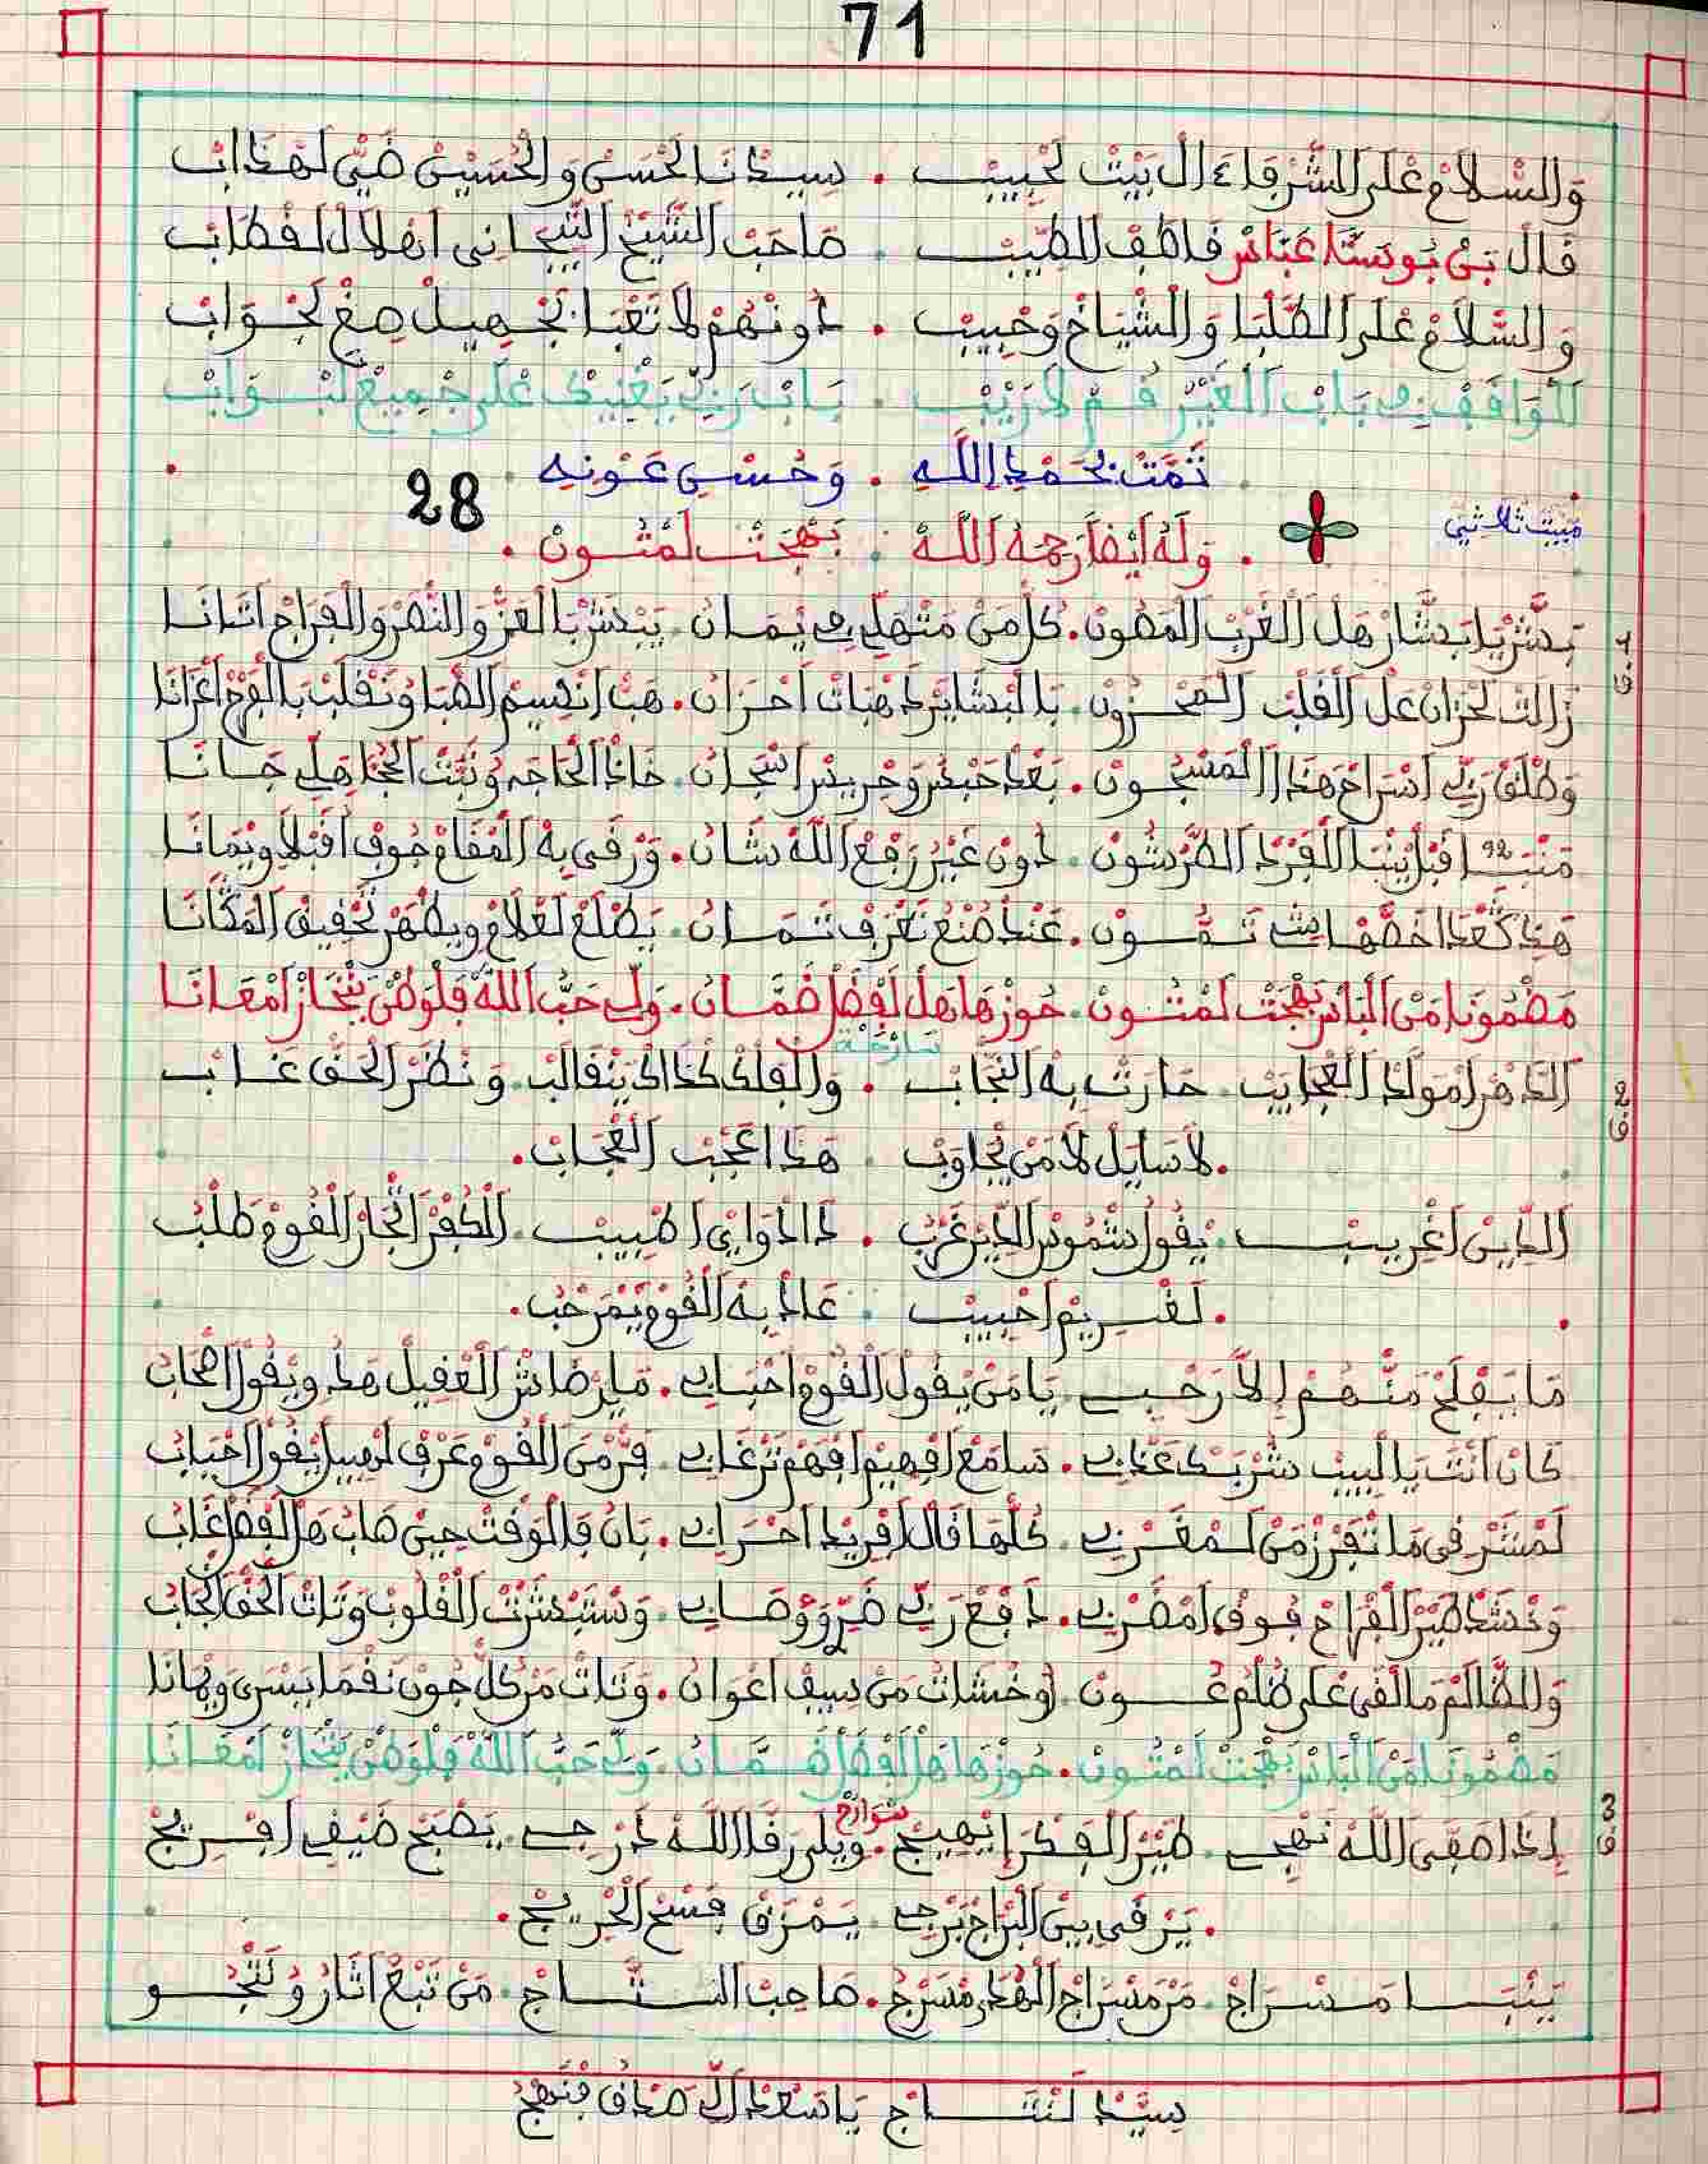 71
وَالسْلَامْ عْلَى الشّرْفَاءَ الْ بَيْتْ لَحْبِيبْ . سِيدْنَا لَحْسَنْ وَ الْحُسَيْنْ ضَيّْ لَهْذَابْ
قَالْ بَنْ بُوسْتَّا عَبَّاسْ قَاطَفْ الطّيبْ . صَاحَبْ الشّيخْ التّيجَانِي انْهَلَالْ لَقْطَابْ
وَالسّلَامْ عْلَى الطّلْبَا وَالْشْيَاخْ وَحْبِيبْ . دُونْهُمْ لَا تَعْبَا بَجْهِيلْ صِغْ لَجْوَابْ
الْوَاقَفْ فِي بَابْ الْغَيْرْ قُمْ لَا رَيْبْ . بَابْ رَبِّي يَغْنِيكْ عْلَى جْمِيعْ لَبْوَابْ
تَمَّتْ بِحَمْدِ اللَّهِ . وَحُسْنِ عَوْنِهِ
28
مبيت ثلاثي
وَلَهُ أَيْضاً رَحِمَهُ اللَّهْ . بَهْجَتْ لَمْتُونْ
1
ق
بَشَّرْ يَا بَشَّارْ هَلْ الْغَرْبْ الْمَصُونْ . كُلّْ مَنْ مَتْهَلِّي فِيمَانْ . يَبْشَرْ بَالْعَزّْ وَالنّصْرْ وَالْفْرَاجْ اتَانَا
زَالَتْ لَحْزَانْ عَلْ الْقَلْبْ الْمَحْزُونْ . بَالْبْشَايَرْ ذَهْبَاتْ احْزَانْ . هَبّْ انْسِيمْ الصّبَا وَنْقَلْبْ بَالْفْرَحْ اعْزَانَا
وَطْلَقْ رَبِّي اسْرَاحْ هَذَا الْمَسْجُونْ . بَعْدْ حَبْسْ وَحْرِيسْ اسْجَانْ . خَادْ الْحَاجَه وَنْبَتْ الْجْنَا هَلِّي جَانَا
مَنْبَـ 92 ا قْبَلْ يَنْبَا الْفَرْدْ الطّرْشُونْ . دُونْ غَيْرْ رَفْعْ اللَّهْ شَانْ . وَرْقَى بِهْ الْمْقَامْ جُوفْ اقْبَلَا وِيمَانَا
هَذَا عْدَا خَصّْهَا تَمُّونْ . عَنْدْ صُنْعْ تَعْرَفْ تَمَانْ . يَطْلَعْ لَعْلَامْ وِيظْهَرْ تَحْقِيقْ الْمْكَانَا
مَضْمُونَا مَنْ الْبَاسْ بَهْجَتْ لَمْتُونْ . حُوزْهَا هَلْ لَفْضَلْ ضَمَّانْ . وَلِّي حَبّْ اللَّهْ فَلْوْطَنْ يَنْحَازْ امْعَانَا
2
ق
سارحة
الدَّهْرْ امْوَلَّدْ الْعْجَايَبْ . حَارَتْ بِهْ النّجَابْ . وَالْفَلْكْ كْذَاكْ يَتْقَالَبْ . وَنْظَرْ الْحَقّْ غَابْ
. لَا سَايَلْ لَا مَنْ يْجَاوَبْ . هَذَا عَجَبْ الْعْجَابْ .
الدِّينْ اغْرِيبْ . يْقُولْ شْمُوسْ الدِّينْ غَرْبْ . دَا دْوَايِ اطْبِيبْ . الْكُفْرْ اتْجَارْ الْقُومْ طَلْبْ
. لَغْرِيمْ احْبِيبْ . عَادْ بِهْ الْقُومْ يْمَرْحَبْ .
مَا يَفْلَحْ مَنّْهُمْ إِلَّا رَحْبِي . يَا مَنْ يْقُولْ الْقُومْ احْبَابِي . مَا يَرْضَاشْ الْعْقِيلْ هَذْ وِيْقُولْ اصْحَابْ
كَانْ انْتَ يَا لْبِيبْ شُرْبَكْ عَذْبِي . سَامَعْ افْهِيمْ افْهَمْ تَرْغَابِي . فَرّْ مَنْ الْقُومْ عَرْفْ لَمْهِيلْ يْقُولْ احْبَابْ
لَمْشَرْقِي مَا تْفَرْزْ مَنْ لَمْغَرْبِي . كُلّْهَا قَالْ افْرِيدْ احْرَابِي . بَانْ فَالْوَقْتْ حِينْ صَابْ هَلْ لَفْضَلْ غَابْ
وَحْشَدْ طَيْرْ الْفْرَاحْ فُوقْ امْضَرْبِي . دَافَعْ رَبِّي ضَرّْ وَوْصَابِي . وَسْتَبْشَرْتْ الْقْلُوبْ وَتَاتْ الْحَقّْ انْجَابْ
وَالظّالَمْ مَا لْقَى عْلَى ظُلْمُ عُونْ . اوْخْشَاتْ مَنْ سِيفْ اعْوَانْ . وَتَاتْ مَنْ كُلّْ جُونْ نَقْمَا بَسْرَى وَبْهَانَا
مَضْمُونَا مَنْ الْبَاسْ بَهْجَتْ لَمْتُونْ . حُوزْهَا هَلْ الْفْضَلْ ضَمَّانْ . وَلِّي حَبّْ اللَّهْ فَلْوْطَنْ يَنْحَازْ امْعَانَا
3
ق
سوارح
إِذَا صْفَى اللَّهْ نَهْجِي . طَيْرْ الْفَكْرْ إِيْهِيجْ . وِيلَى رَقَّا اللَّهْ دَرْجِي . يَصْبَحْ ضَيْفِي افْرِيجْ
. يَرْقَى بِينْ الْبْرَاجْ بَرْجِي . يَمْرَقْ فَسْحْ الْخْرِيجْ .
يَنْبَا مَسْرَاجْ . مَنْ مَسْرَاجْ الْهْدَى مْسَرْجْ . صَاحَبْ التَّاجْ . مَنْ تْبَعْ اثَارُ وَنْتْجُو
سِيدْ لَنْتَاجْ يَا سَعْدْ الِّي صْدَفْ فَنْهْجْ